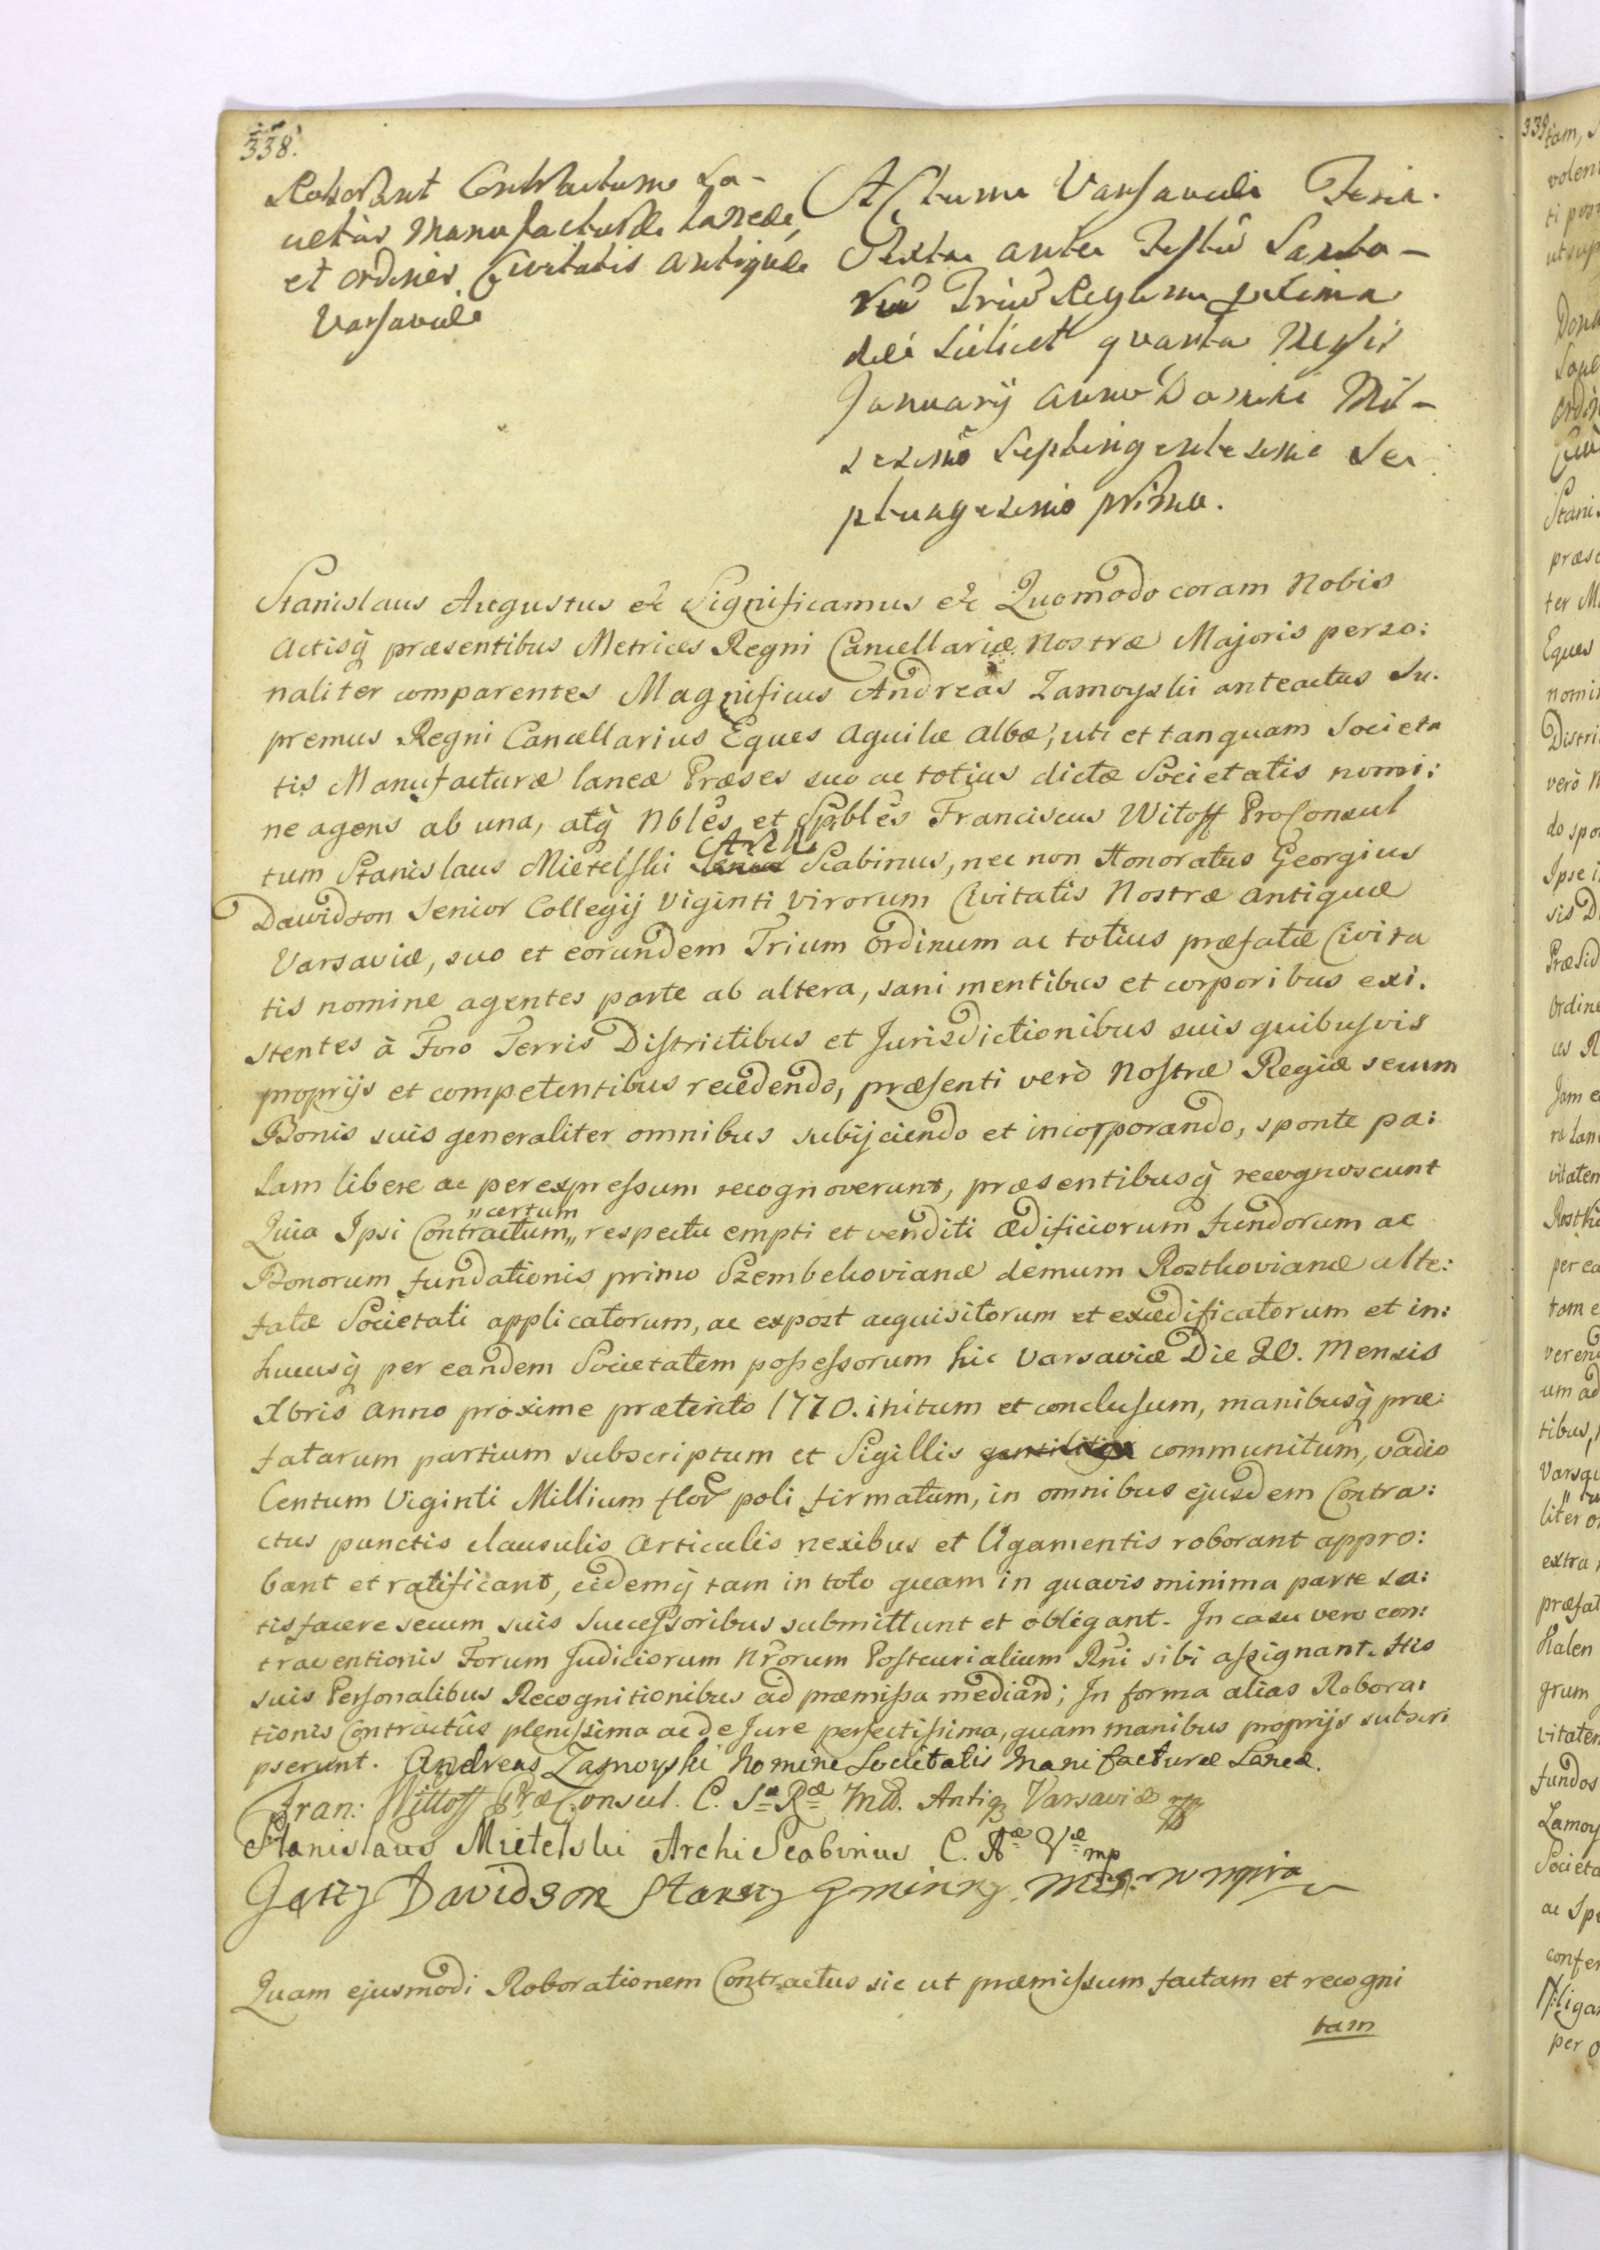 338.
Roborant Contractum So-
cietas Manufacturae Laneae,
et Ordines Civitatis Antiquae
Varsaviae
Actum Varsaviae Feria
Sexta ante Festũ Sancto-
rũ Triũ Regum proxima
die scilicet quarta Mensis
January Anno Domini Mil-
lesimõ Septingentesimo Se-
ptuagesimo primo.
Stanislaus Augustus etc Significamus etc Quomodo coram Nobis
Actisq̃ præsentibus Metrices Regni Cancellariæ Nostræ Majoris perso:
naliter comparentes Magnificus Andreas Zamoyski anteactus Su-
premus Regni Cancellarius Eques Aquilæ Albæ, uti et tanquam Societa
tis Manufacturæ laneæ Præses suo ac totius dictæ Societatis nomi:
ne agens ab una, atq̃ Nbles et Spbles Franciscus Witoff ProConsul
tum Stanislaus Mietelski Archi Scabinus, nec non Honoratus Georgius
Dawidson Senior Collegij Viginti Virorum Civitatis Nostræ Antiquæ
Varsaviæ, suo et eorundem Trium Ordinum ac totius præfatæ Civita
tis nomine agentes parte ab altera, sani mentibus et corporibus exi.
stentes à Foro Terris Districtibus et Jurisdictionibus suis quibusvis
proprijs et competentibus recedendo, præsenti verò Nostræ Regiæ secum
Bonis suis generaliter omnibus subijciendo et incorporando, sponte pa:
lam libere ac per expressum recognoverunt, præsentibusq̃ recognoscunt
Quia Ipsi Contractum „certum„ respectu empti et venditi ædificiorum fundorum ac
Bonorum fundationis primo Szembekovianæ demum Rostkovianæ alte:
fatæ Societati applicatorum, ac expost acquisitorum et exædificatorum et in:
hucusq̃ per eandem Societatem possessorum hic Varsaviæ Die 20. Mensis
Xbris Anno proxime præterito 1770. initum et conclusum, manibusq̃ præ:
fatarum partium subscriptum et Sigillis communitum, vadio
Centum Viginti Millium flor poli firmatum, in omnibus ejusdem Contra:
ctus punctis clausulis Articulis nexibus et ligamentis roborant appro:
bant et ratificant, eidemq̃ tam in toto quam in quavis minima parte sa:
tisfacere secum suis Successoribus submittunt et obligant. In casu vero con:
traventionis Forum Judiciorum Nrorum Postcurialium Rni sibi assignant. His
suis Personalibus Recognitionibus ad præmissa mediand; In forma alias Robora:
tionis Contractûs plenissima ac de Jure perfectissima, quam manibus proprijs subscri
pserunt. Andreas Zamoyski Nomine Societatis Manifacturæ Laneæ.
Fran: Wittoff PræConsul. C. Sæ Ræ Mtt. Antiq Varsaviæ mp
Stanislaus Mietelski Archi Scabinus C. Aæ Væ mp
Jerzy Davidson Starszy Gminny
Quam ejusmodi Roborationem Contractus sic ut præmissum factam et recogni
tam